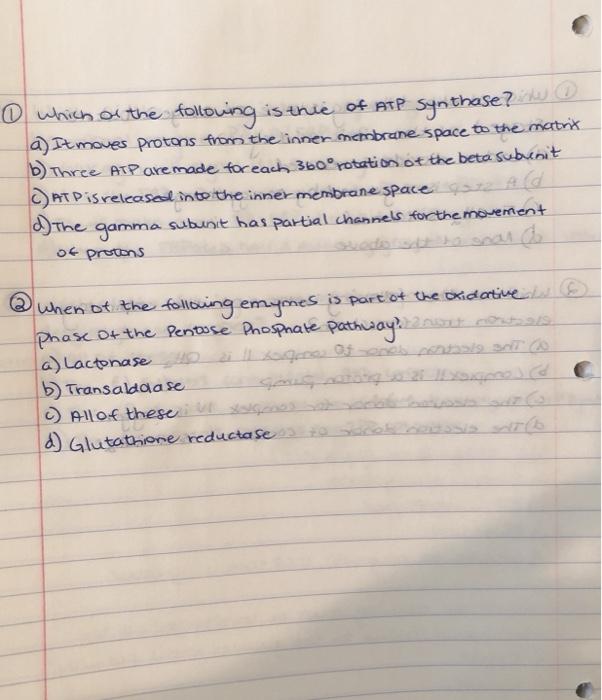 ① which of the following is true of ATP synthase?
a) It moves protons from the inner membrane space to the matrix
b) Three ATP are made for each 360° rotation of the beta subunit
c) ATP is released into the inner membrane space
d) The gamma subunit has partial channels for the movement
of protons
② When of the following enzymes is part of the oxidative
phase of the Pentose Phosphate pathway?
a) Lactonase
b) Transaldolase
c) All of these
d) Glutathione reductase